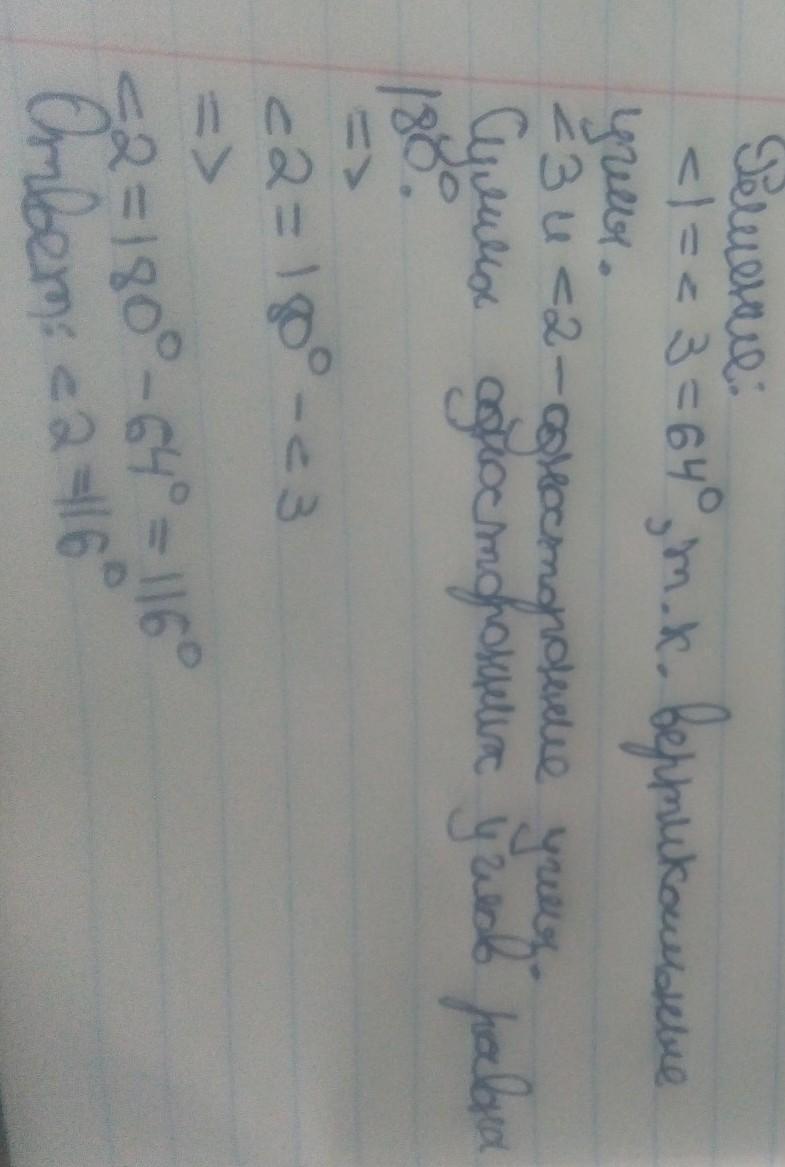 Решение:
<1 = < 3 = 64°, т.к. вертикальные
углы.
<3 и <2 - односторонние углы.
Сумма односторонних углов равна
180°.
=>
<2 = 180° - <3
=>
<2 = 180° - 64° = 116°
Ответ: <2 = 116°